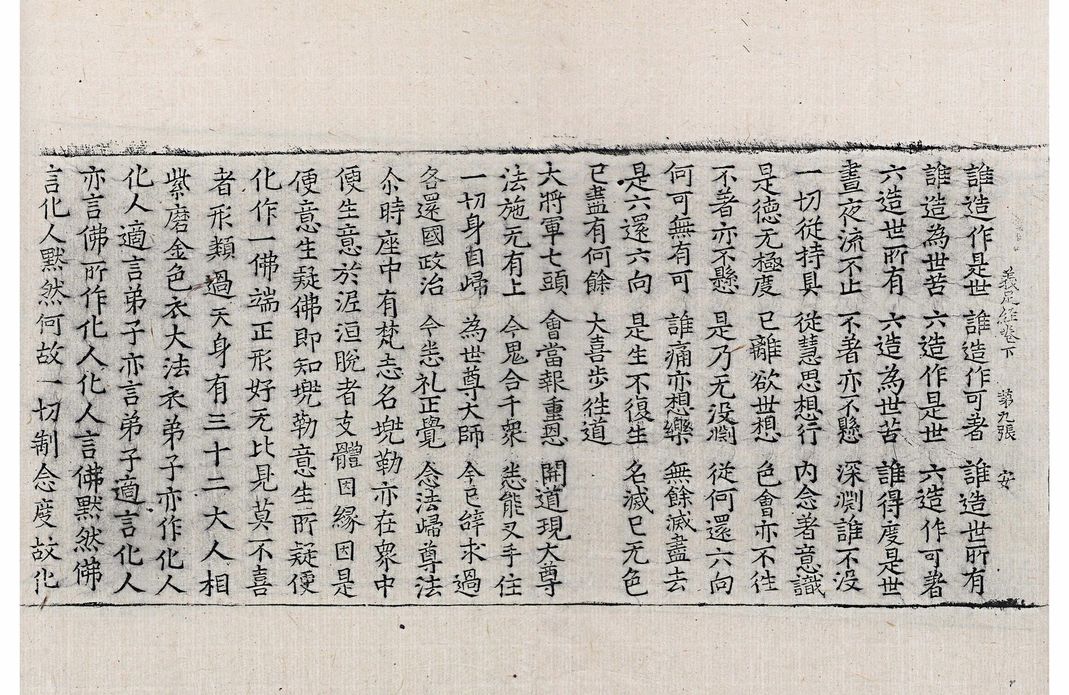 義足経卷下　第九張　安
誰造作是世　誰造作可著　誰造世所有
誰造為世苦　六造作是世　六造作可著
六造世所有　六造為世苦　誰得度是世
晝夜流不止　不著亦不懸　深渕誰不没
一切從持具　從慧思想行　内念著意識
是徳无極度　已離欲世想　色會亦不往
不著亦不懸　是乃无没渕　從何還六向
何可無有可　誰痛亦想樂　無餘滅盡去
是六還六向　是生不復生　名滅已无色
已盡有何餘　大喜步徃道
大將軍七頭　會當報重恩　開道現大尊
法施无有上　今鬼合千衆　悉能叉手住
一切身自歸　為世尊大師　今已辝求過
各還國政治　今悉礼正覺　念法歸尊法
尒時座中有梵志名兠勒亦在衆中
便生意於泥洹脫者支體因縁因是
便意生疑佛即知兠勒意生所疑便
化作一佛端正形好无比見莫不喜
者形類過天身有三十二大人相
紫磨金色衣大法衣弟子亦作化人
化人適言弟子亦言弟子適言化人
亦言佛所作化人化人言佛黙然佛
言化人黙然何故一切制念度故化